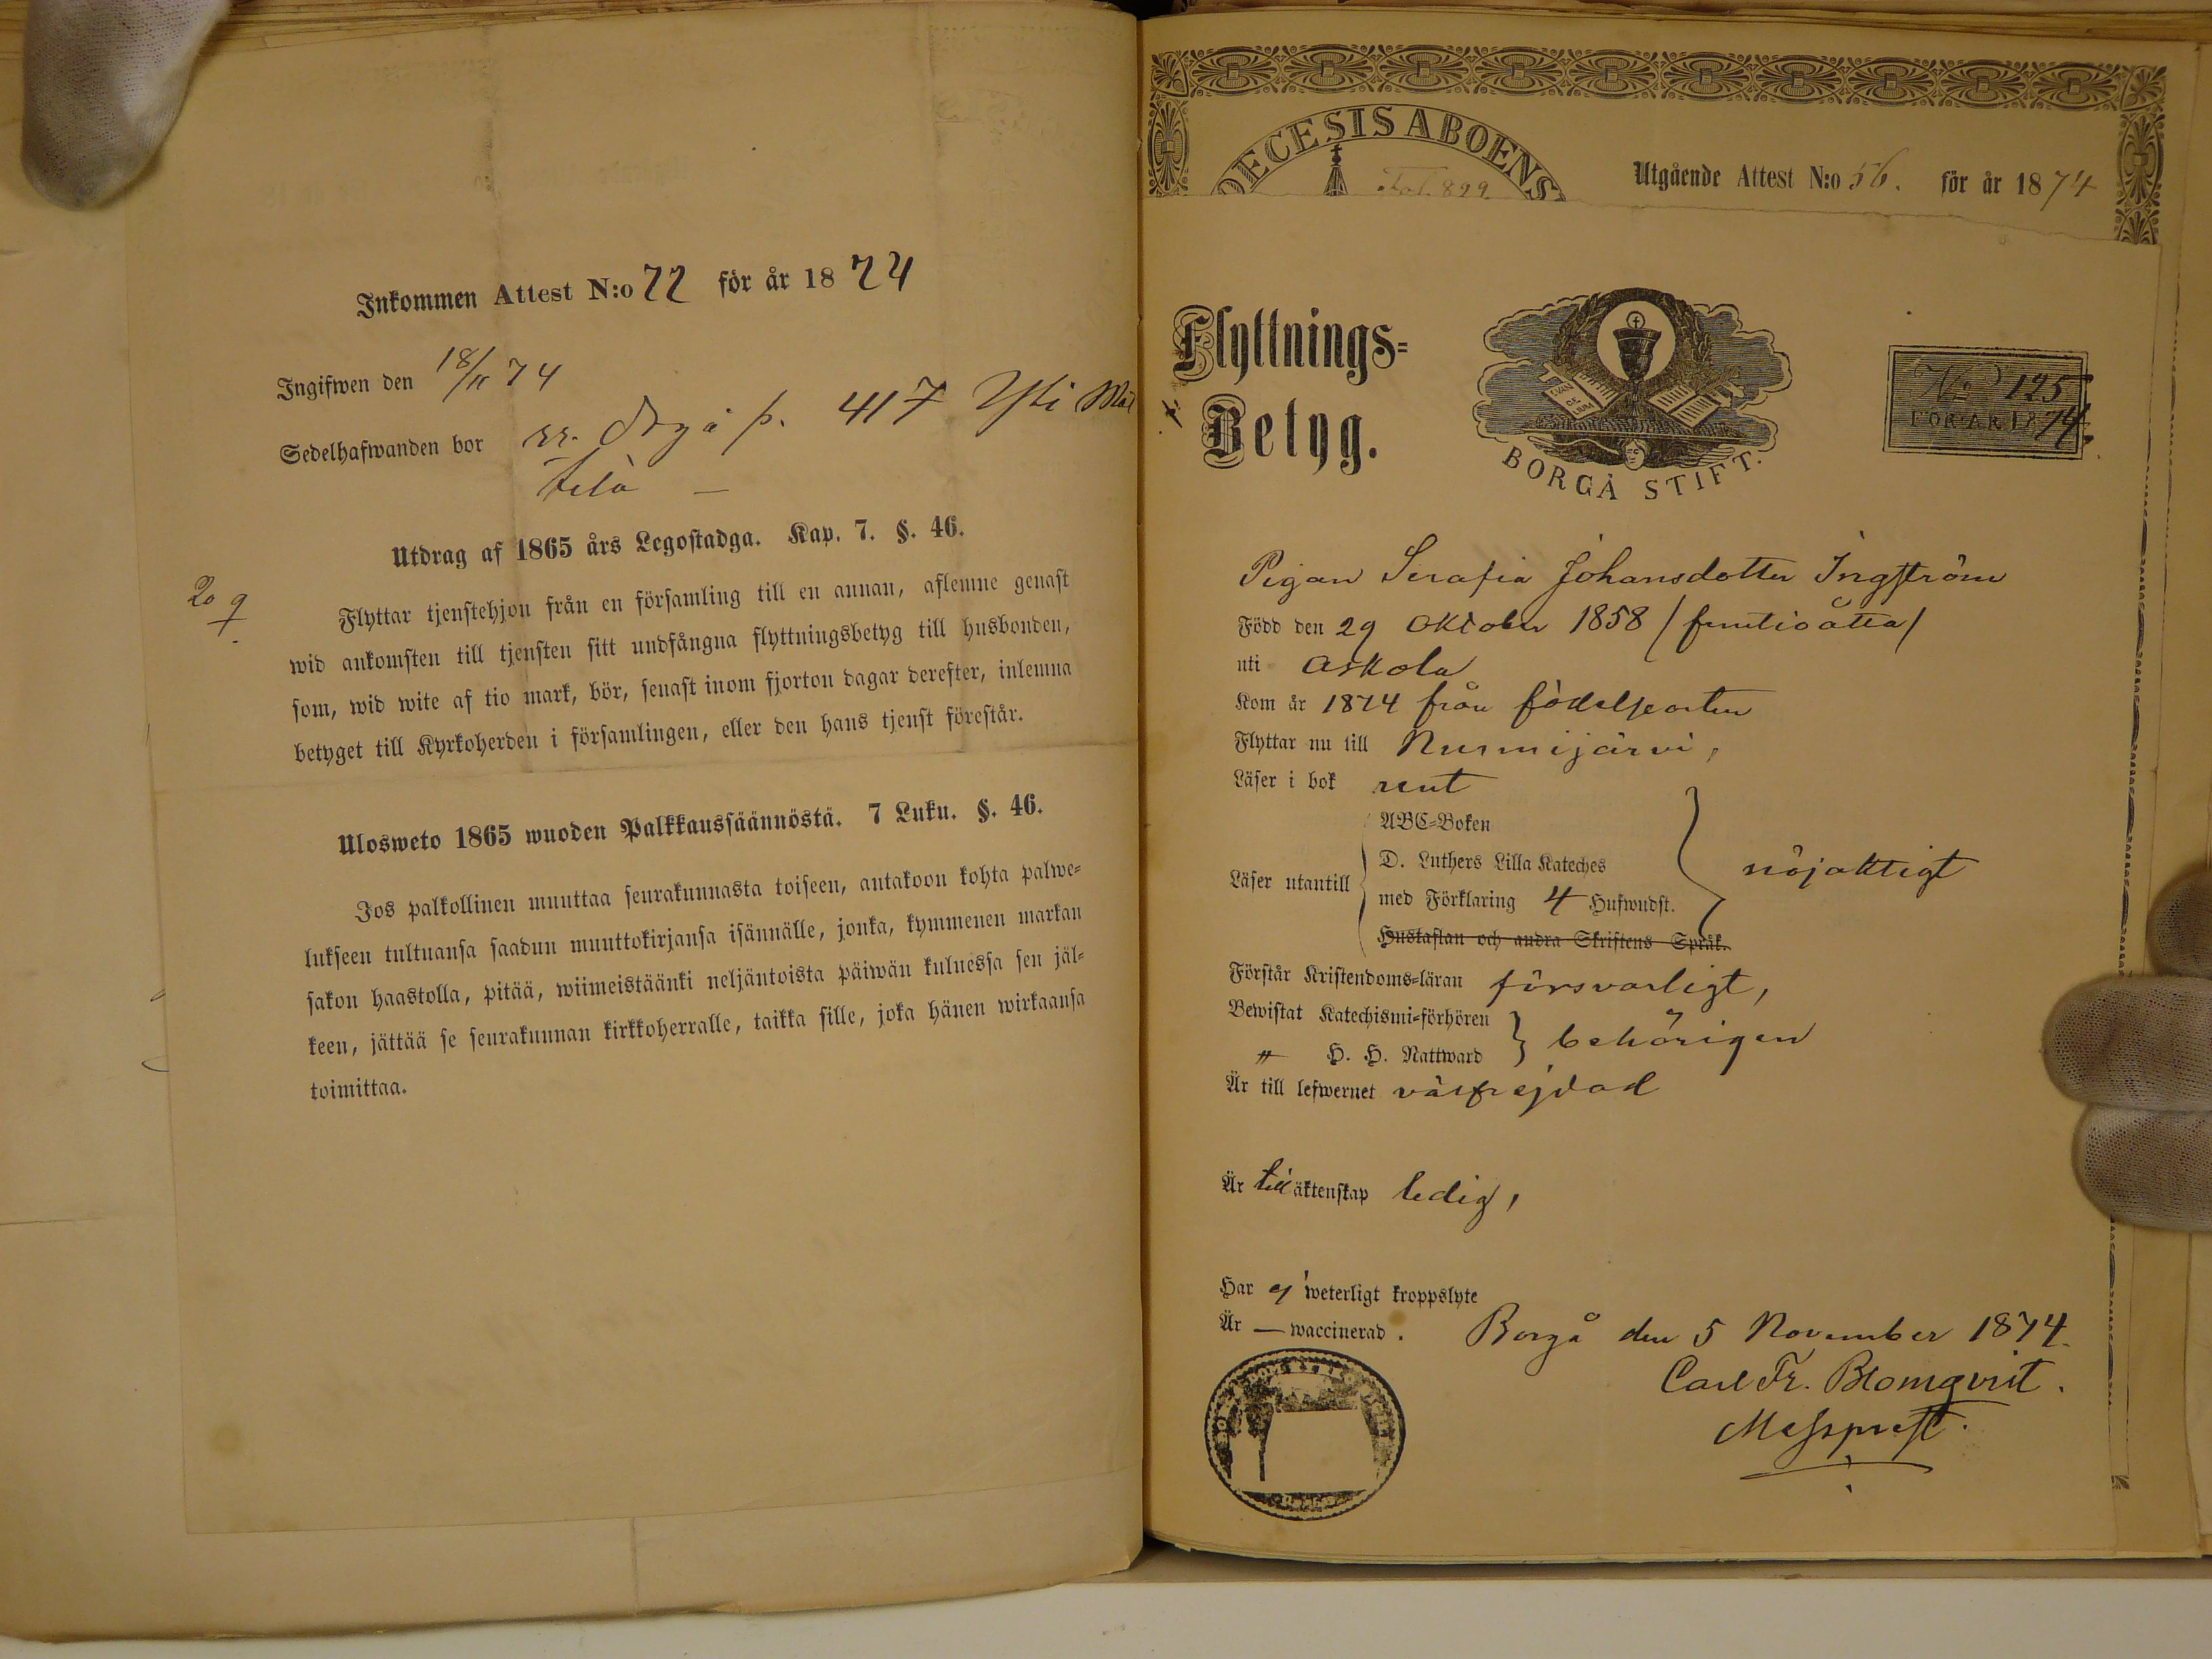 Inkommen Attest N:o 72 för år 1874
Ingifwen den 18/11 74
Sedelhafwanden bor p. 417 Yli
Utdrag af 1865 års Legostadga. Kap. 7. §. 46.
Flyttar tjenstehjon från en församling till en annan, aflemne genast
wid ankomsten till tjensten sitt undfångna flyttningsbetyg till husbonden,
som, wid wite af tio mark, bör, senast inom fjorton dagar derefter, inlemna
betyget till Kyrkoherden i församlingen, eller den hans tjenst förestår.
Ulosweto 1865 wuoden Palkkaussäännöstä. 7 Luku. §. 46.
Jos palkollinen muuttaa seurakunnasta toiseen, antakoon kohta palwe=
lukseen tultuansa saadun muuttokirjansa isännälle, jonka, kymmenen markan
sakon haastolla, pitää, wiimeistäänki neljäntoista päiwän kuluessa sen jäl=
keen, jättää se seurakunnan kirkkoherralle, taikka sille, joka hänen wirkaansa
toimittaa.
DECESIS ABOENS
Fol. 899.
Utgående Attest N:o 56. för år 1874
Flyttnings=
Betyg.
EVAN
GE
LIUM
BORGÅ STIFT.
No 125
FÖR ÅR 1874.
Pigan Serafia Johansdotter Ingström
Född den 29 Oktober 1858 / femtioåtta /
uti Askola
Kom år 1874 från födelseorten
Flyttar nu till Nurmijärvi,
Läser i bok rent
Läser utantill
ABC=Boken
D. Luthers Lilla Kateches
med Förklaring 4 Hufwudst.
Hustaflan och andra Skriftens Språk.
nöjaktigt
Förstår Kristendoms=läran försvarligt,
Bewistat Katechismi=förhören
" H. H. Nattward
behörigen
Är till lefwernet välfrejdad
Är till äktenskap ledig,
Har ej weterligt kroppslyte
Är — waccinerad.
Borgå den 5 November 1874.
Carl Fr. Blomqvist.
Messprest.